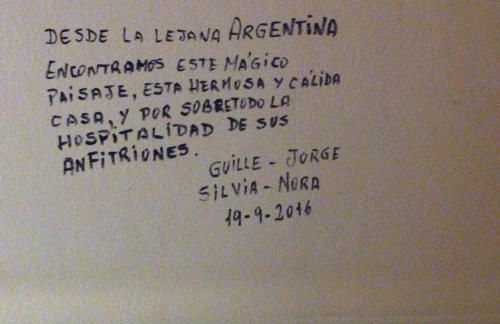 DESDE LA LEJANA ARGENTINA
ENCONTRAMOS ESTE MÁGICO
PAISAJE, ESTA HERMOSA Y CÁLIDA
CASA, Y POR SOBRETODO LA
HOSPITALIDAD DE SUS
ANFITRIONES.
GUILLE - JORGE
SILVIA - NORA
19-9-2016